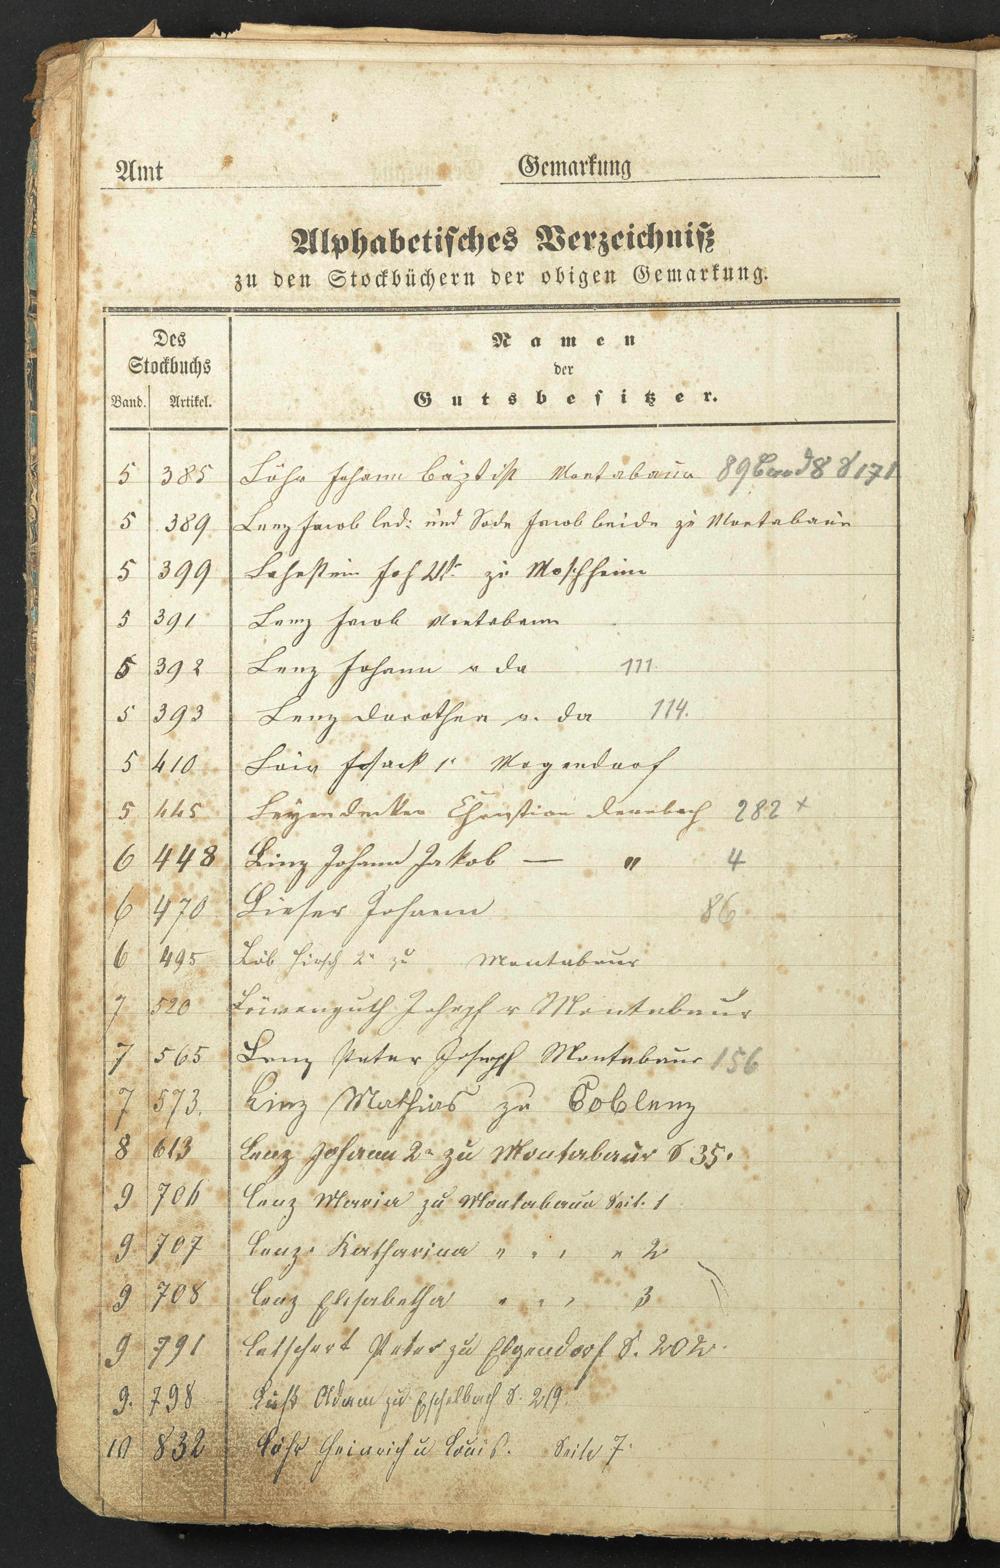 Amt Gemarkung
Alphabetisches Verzeichniß
zu den Stockbüchern der obigen Gemarkung.
Des Stockbuchs
Band. Artikel.
Namen
der
Gutsbesitzer.
5 385 Löhr Johann Baptist Montabaur 89 Band 8 S 171
5 389 Lenz Jacob led: und Jacob beide zu Montabaur
5 399 Lahnstein Joh zu Moschheim
5 391 Lenz Jacob Montabaur
5 392 Lenz Johann v da 111
5 393 Lenz Dorothea v. da 114.
5 410 Löw Isack Wegendorf
5 445 Leyendecker Christian Dernbach 282 +
6 448 Linz Johann Jakob — " 4
6 470 Lieser Johann 86
6 495 Löb Hirsch 2r zu Montabaur
7 520 Löwenguth Joseph v Montabaur
7 565 Lenz Peter Joseph Montabaur 156
7 573. Linz Mathias zu Coblenz
8 613 Lenz Johann 2r zu Montabaur S 35.
9 706 Lenz Maria zu Montabaur Seite 1
9 707 Lenz Katharina " " " " 2
9 708 Lenz Elisabetha " " " 3
9 791 Letschert Peter zu Elgendorf S. 202.
9. 798 Adam zu Eschelbach S. 219.
10 832 Löhr Heinrich u Louis. Seite 7.